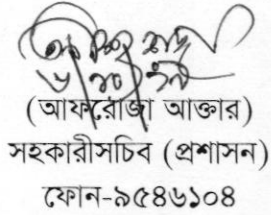 (আফরোজা আক্তার)
সহকারীসচিব (প্রশাসন)
ফোন-৯৫৪৬১০৪